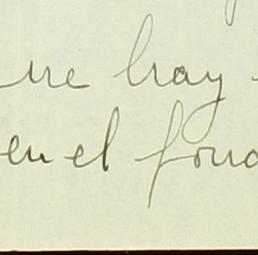 hay
en el fond